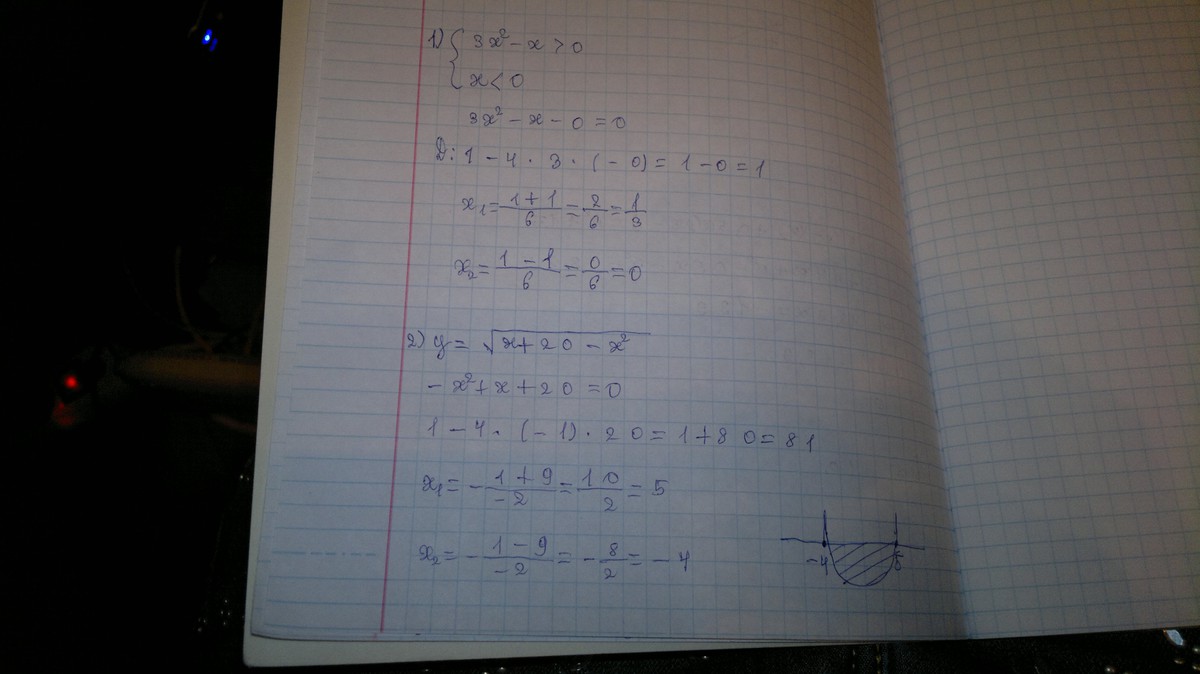 1) { 3x² - x > 0
x < 0
3x² - x - 0 = 0
D: 1 - 4 · 3 · (- 0) = 1 - 0 = 1
x₁ = (1 + 1)/6 = 2/6 = 1/3
x₂ = (1 - 1)/6 = 0/6 = 0
2) y = √(x + 20 - x²)
- x² + x + 20 = 0
1 - 4 · (- 1) · 20 = 1 + 80 = 81
x₁ = - (1 + 9)/(- 2) = 10/2 = 5
x₂ = - (1 - 9)/(- 2) = - 8/2 = - 4
-4 5